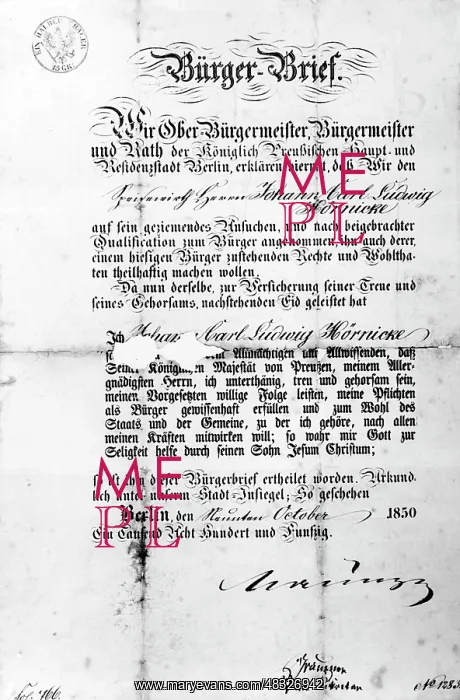 EIN HALBER THALER
15 GR:
Bürger-Brief.
Wir Ober-Bürgermeister, Bürgermeister
und Rath der Königlich Preußischen Haupt- und
Residenzstadt Berlin, erklären hiermit, daß Wir den
Speisewirth Herrn Johann Carl Ludwig
Hörnicke
auf sein geziemendes Ansuchen, und nach beigebrachter
Qualification zum Bürger angenommen, ihn auch derer,
einem hiesigen Bürger zustehenden Rechte und Wohltha-
ten theilhaftig machen wollen.
Da nun derselbe, zur Versicherung seiner Treue und
seines Gehorsams, nachstehenden Eid geleistet hat
Ich Johann Carl Ludwig Hörnicke
dem Allmächtigen und Allwissenden, daß
Seiner Königlichen Majestät von Preußen, meinem Aller-
gnädigsten Herrn, ich unterthänig, treu und gehorsam sein,
meinen Vorgesetzten willige Folge leisten, meine Pflichten
als Bürger gewissenhaft erfüllen und zum Wohl des
Staats und der Gemeine, zu der ich gehöre, nach allen
meinen Kräften mitwirken will; so wahr mir Gott zur
Seligkeit helfe durch seinen Sohn Jesum Christum;
so ist ihm dieser Bürgerbrief ertheilet worden. Urkund-
lich unter unserm Stadt-Insiegel; So geschehen
Berlin, den Neunten October 1850
Ein Tausend Acht Hundert und Funfzig.
Fol. 166.
No 1283
ME
PL
ME
PL
www.maryevans.com/48326942